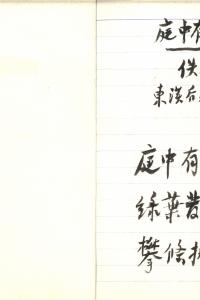 庭中有
佚
東漢后
庭中有
绿葉發
攀條折